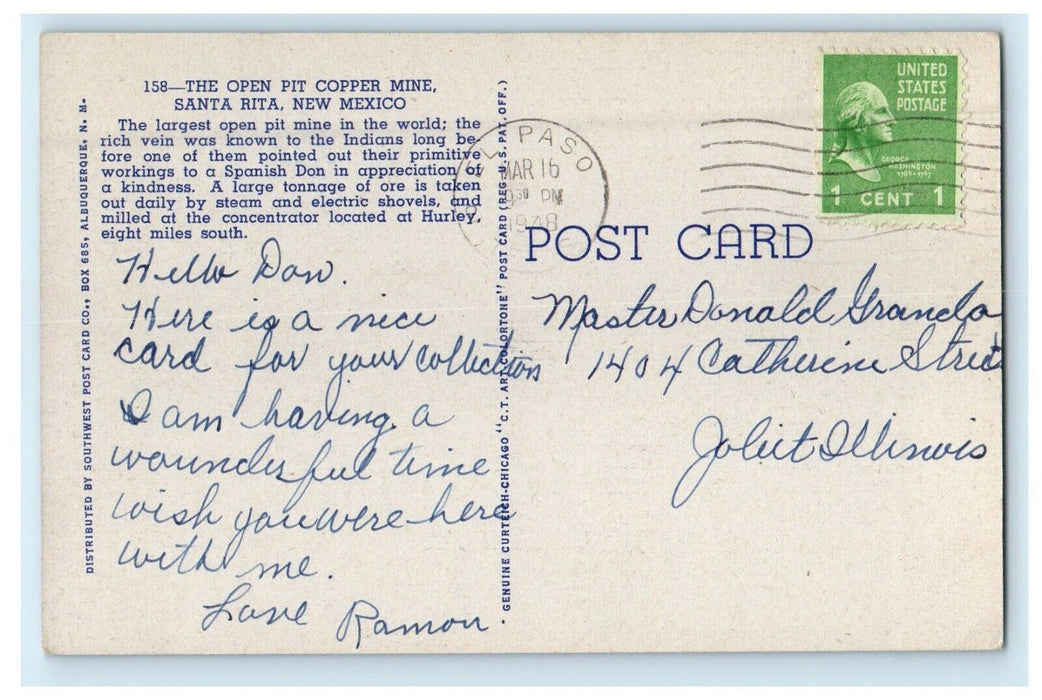 158—THE OPEN PIT COPPER MINE,
SANTA RITA, NEW MEXICO
The largest open pit mine in the world; the
rich vein was known to the Indians long be-
fore one of them pointed out their primitive
workings to a Spanish Don in appreciation of
a kindness. A large tonnage of ore is taken
out daily by steam and electric shovels, and
milled at the concentrator located at Hurley,
eight miles south.
Hello Don.
Here is a nice
card for your collection
I am having a
wounderful time
wish you were here
with me.
Love Ramon.
DISTRIBUTED BY SOUTHWEST POST CARD CO., BOX 685, ALBUQUERQUE, N. M.
GENUINE CURTEICH-CHICAGO "C.T. ART-COLORTONE" POST CARD (REG. U.S. PAT. OFF.)
EL PASO
MAR 16
9 30 PM
1948
UNITED
STATES
POSTAGE
GEORGE
WASHINGTON
1789-1797
1 CENT 1
POST CARD
Master Donald Granda
1404 Catherine Street
Joliet Illinois